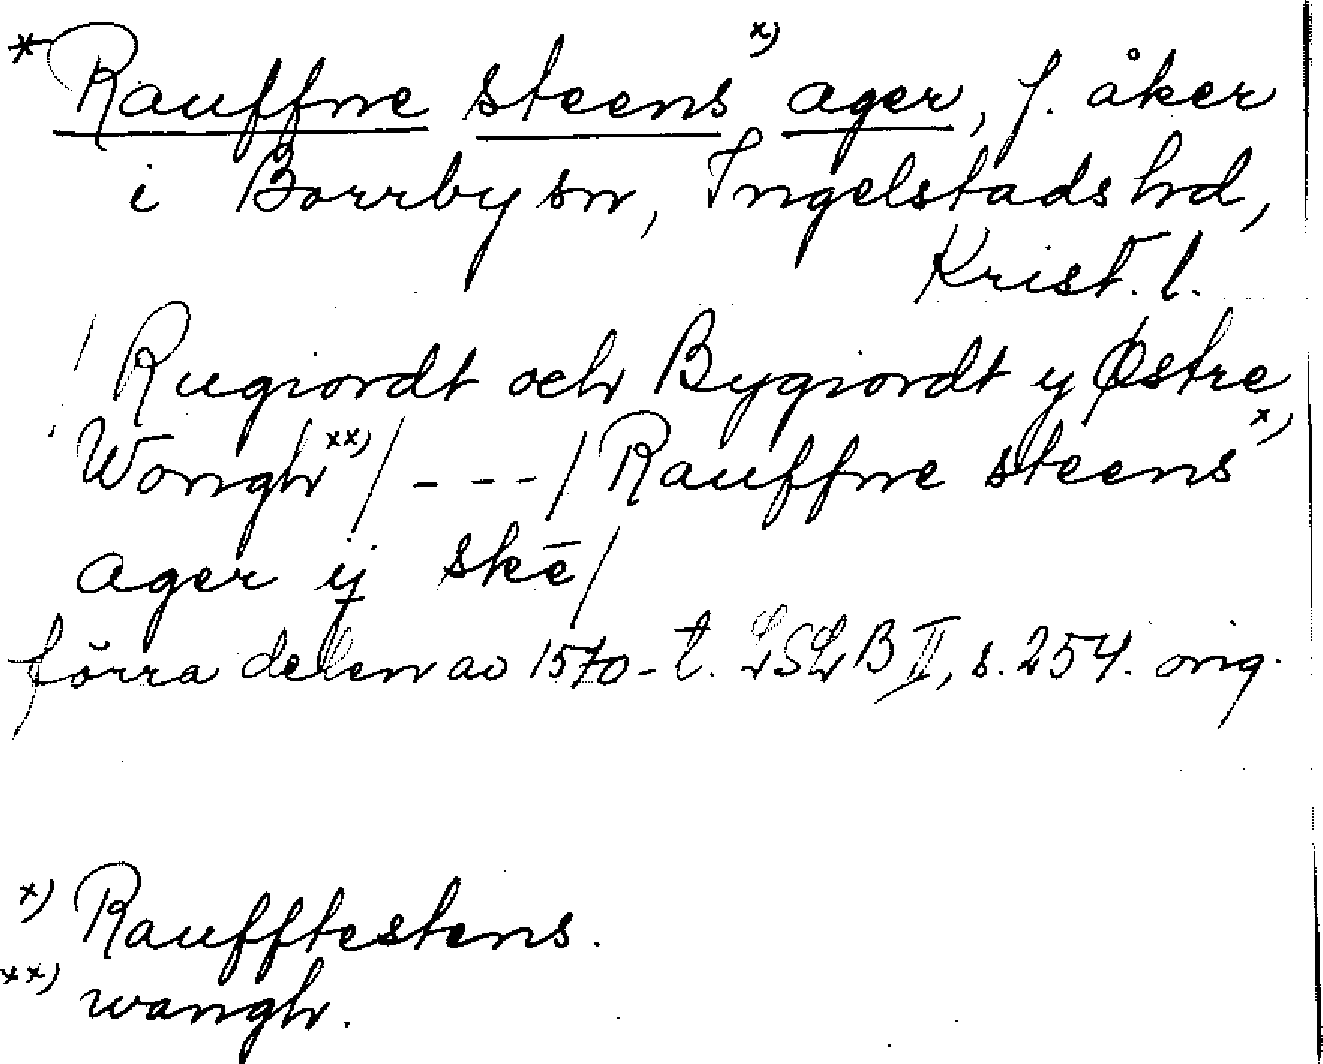 * Rauffne steens x) ager, f. åker
i Borrby sn, Ingelstads hd,
Krist. l.
/ Rugiordt och Bygiordt y Østre
Wongh xx) / - - - / Rauffne steens x)
ager ij skē /
förra delen av 1570-t. LSLB II, s. 254. orig.
x) Raufftestens.
xx) wangh.